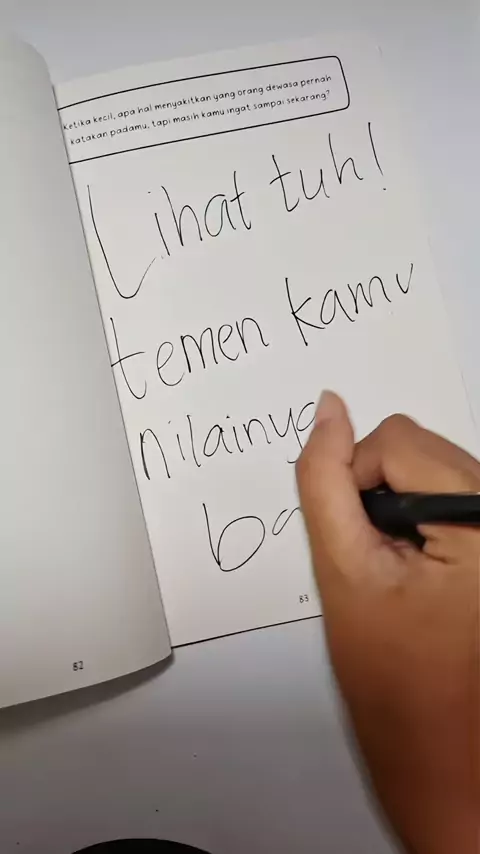 ketika kecil, apa hal menyakitkan yang orang dewasa pernah
katakan padamu, tapi masih kamu ingat sampai sekarang?
Lihat tuh!
temen kamu
nilainya
ba
83
82